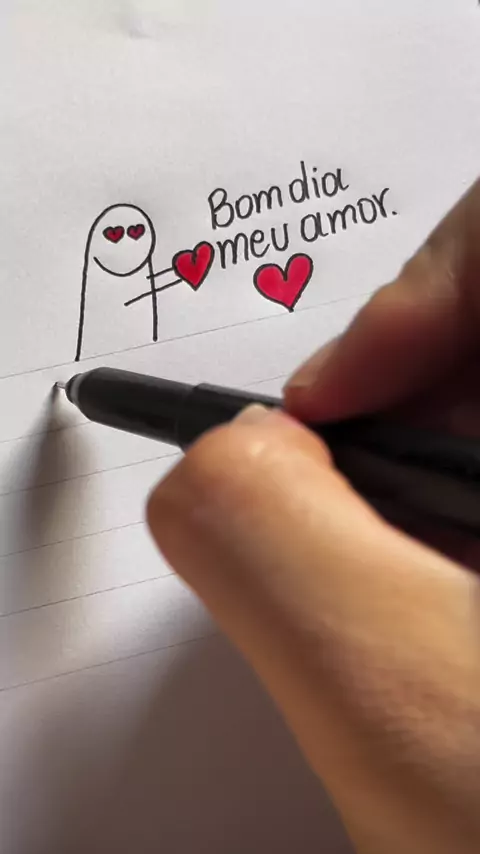 Bom dia
meu amor.